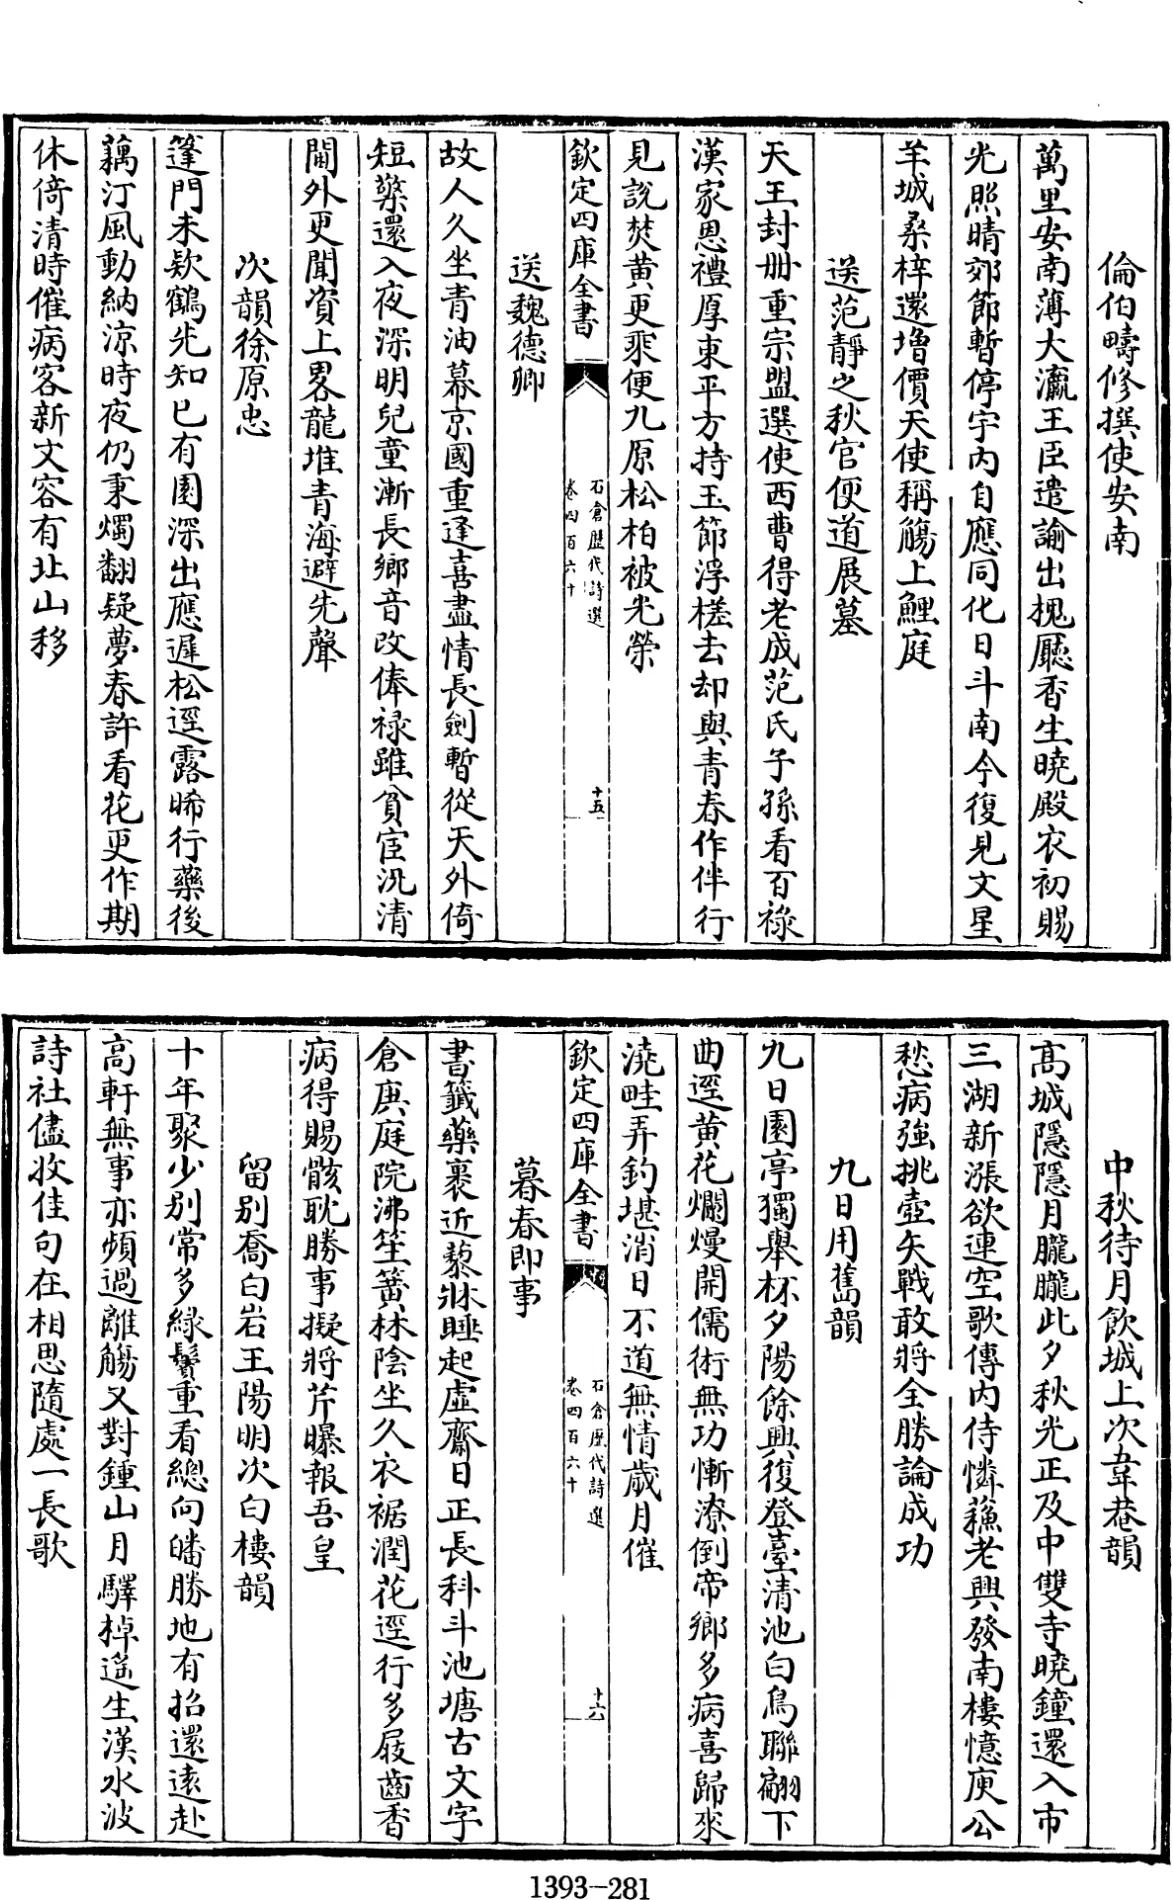 倫伯疇修撰使安南
萬里安南薄大瀛王臣遣諭出槐廳香生曉殿衣初賜
光照晴郊節暫停宇内自應同化日斗南今復見文星
羊城桑梓還增價天使稱觴上鯉庭
送范靜之秋官便道展墓
天王封冊重宗盟選使西曹得老成范氏子孫看百祿
漢家恩禮厚東平方持玉節浮槎去却與青春作伴行
見説焚黄更乘便九原松柏被光榮
欽定四庫全書
石倉歷代詩選
卷四百六十
十五
送魏德卿
故人久坐青油幕京國重逢喜盡情長劍暫從天外倚
短檠還入夜深明兒童漸長鄉音改俸禄雖貧宦況清
閫外更聞資上畧龍堆青海避先聲
次韻徐原忠
篷門未欵鶴先知已有園深出應遲松逕露晞行藥後
藕汀風動納涼時夜仍秉燭翻疑夢春許看花更作期
休倚清時催病客新文容有北山移
中秋待月飲城上次韋菴韻
髙城隱隱月朧朧此夕秋光正及中雙寺曉鐘還入市
三湖新漲欲連空歌傳内侍憐蘓老興發南樓憶庾公
愁病強挑壺矢戰敢將全勝論成功
九日用舊韻
九日園亭獨舉杯夕陽餘興復登臺清池白鳥聯翩下
曲逕黄花爛熳開儒術無功慚潦倒帝鄉多病喜歸來
澆畦弄釣堪消日不道無情歲月催
欽定四庫全書
石倉歷代詩選
卷四百六十
十六
暮春即事
書籤藥裹近藜牀睡起虚齋日正長科斗池塘古文字
倉庚庭院沸笙簧林陰坐久衣裾潤花逕行多屐齒香
病得賜骸耽勝事擬將芹曝報吾皇
留别喬白岩王陽明次白樓韻
十年聚少别常多緑鬢重看總向皤勝地有招還遠赴
高軒無事亦頻過離觴又對鍾山月驛棹遥生漢水波
詩社儘收佳句在相思隨處一長歌
1393-281